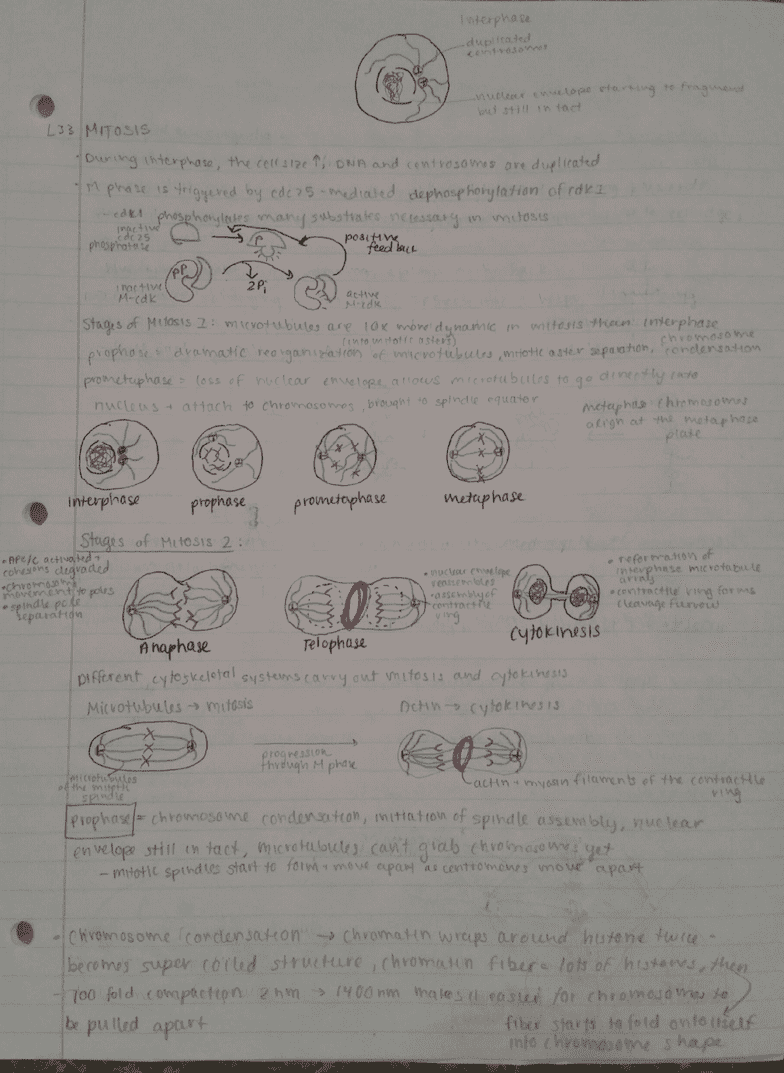 Interphase
duplicated
centrosomes
nuclear envelope starting to fragment
but still in tact
L33 MITOSIS
· During interphase, the cell size ↑, DNA and centrosomes are duplicated
· M phase is triggered by cdc25-mediated dephosphorylation of cdk1
- cdk1 phosphorylates many substrates necessary in mitosis
inactive
cdc25
phosphatase
P
positive
feedback
PP
2Pi
inactive
M-cdk
active
M-cdk
Stages of Mitosis 1: microtubules are 10x more dynamic in mitosis than interphase
(into mitotic asters)
prophase = dramatic reorganization of microtubules, mitotic aster separation, chromosome
condensation
prometaphase = loss of nuclear envelope allows microtubules to go directly into
nucleus + attach to chromosomes, brought to spindle equator
metaphase: chromosomes
align at the metaphase
plate
interphase
prophase
prometaphase
metaphase
Stages of Mitosis 2:
· APC/C activated +
cohesins degraded
· chromosome
movement to poles
· spindle pole
separation
Anaphase
Telophase
· nuclear envelope
reassembles
· assembly of
contractile
ring
Cytokinesis
· reformation of
interphase microtubule
array
· contractile ring forms
cleavage furrow
Different cytoskeletal systems carry out mitosis and cytokinesis
Microtubules → mitosis
Actin → cytokinesis
microtubules
of the mitotic
spindle
progression
through M phase
actin + myosin filaments of the contractile
ring
prophase = chromosome condensation, initiation of spindle assembly, nuclear
envelope still in tact, microtubules can't grab chromosomes yet
- mitotic spindles start to form + move apart as centromeres move apart
- Chromosome "condensation" → chromatin wraps around histone twice -
becomes super coiled structure, chromatin fiber = lots of histones, then
fiber starts to fold onto itself
into chromosome shape
- 700 fold compaction 2nm → 1400nm makes it easier for chromosomes to
be pulled apart